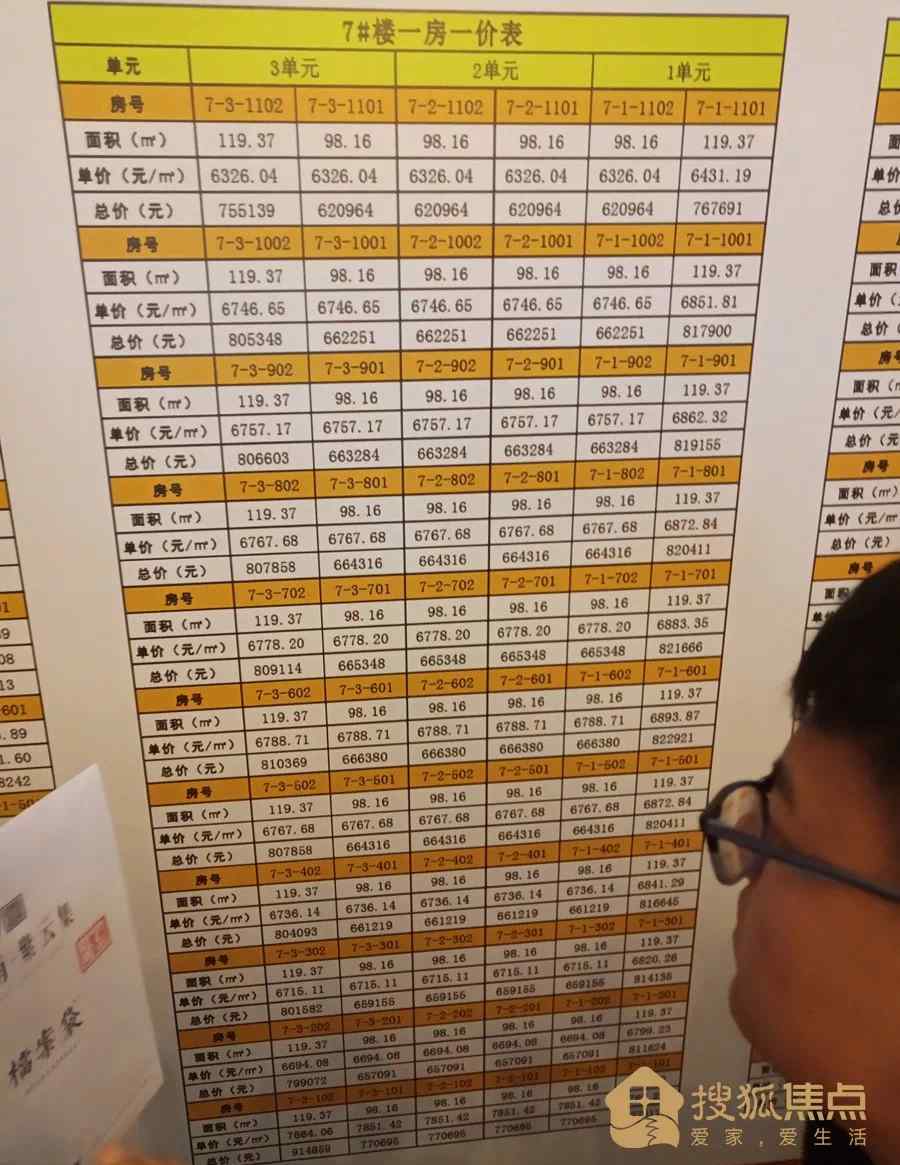 7#楼一房一价表
单元 3单元 2单元 1单元
房号 7-3-1102 7-3-1101 7-2-1102 7-2-1101 7-1-1102 7-1-1101
面积（㎡） 119.37 98.16 98.16 98.16 98.16 119.37
单价（元/㎡） 6326.04 6326.04 6326.04 6326.04 6326.04 6431.19
总价（元） 755139 620964 620964 620964 620964 767691
房号 7-3-1002 7-3-1001 7-2-1002 7-2-1001 7-1-1002 7-1-1001
面积（㎡） 119.37 98.16 98.16 98.16 98.16 119.37
单价（元/㎡） 6746.65 6746.65 6746.65 6746.65 6746.65 6851.81
总价（元） 805348 662251 662251 662251 662251 817900
房号 7-3-902 7-3-901 7-2-902 7-2-901 7-1-902 7-1-901
面积（㎡） 119.37 98.16 98.16 98.16 98.16 119.37
单价（元/㎡） 6757.17 6757.17 6757.17 6757.17 6757.17 6862.32
总价（元） 806603 663284 663284 663284 663284 819155
房号 7-3-802 7-3-801 7-2-802 7-2-801 7-1-802 7-1-801
面积（㎡） 119.37 98.16 98.16 98.16 98.16 119.37
单价（元/㎡） 6767.68 6767.68 6767.68 6767.68 6767.68 6872.84
总价（元） 807858 664316 664316 664316 664316 820411
房号 7-3-702 7-3-701 7-2-702 7-2-701 7-1-702 7-1-701
面积（㎡） 119.37 98.16 98.16 98.16 98.16 119.37
单价（元/㎡） 6778.20 6778.20 6778.20 6778.20 6778.20 6883.35
总价（元） 809114 665348 665348 665348 665348 821666
房号 7-3-602 7-3-601 7-2-602 7-2-601 7-1-602 7-1-601
面积（㎡） 119.37 98.16 98.16 98.16 98.16 119.37
单价（元/㎡） 6788.71 6788.71 6788.71 6788.71 6788.71 6893.87
总价（元） 810369 666380 666380 666380 666380 822921
房号 7-3-502 7-3-501 7-2-502 7-2-501 7-1-502 7-1-501
面积（㎡） 119.37 98.16 98.16 98.16 98.16 119.37
单价（元/㎡） 6767.68 6767.68 6767.68 6767.68 6767.68 6872.84
总价（元） 807858 664316 664316 664316 664316 820411
房号 7-3-402 7-3-401 7-2-402 7-2-401 7-1-402 7-1-401
面积（㎡） 119.37 98.16 98.16 98.16 98.16 119.37
单价（元/㎡） 6736.14 6736.14 6736.14 6736.14 6736.14 6841.29
总价（元） 804093 661219 661219 661219 661219 816645
房号 7-3-302 7-3-301 7-2-302 7-2-301 7-1-302 7-1-301
面积（㎡） 119.37 98.16 98.16 98.16 98.16 119.37
单价（元/㎡） 6715.11 6715.11 6715.11 6715.11 6715.11 6820.26
总价（元） 801582 659155 659155 659155 659155 814135
房号 7-3-202 7-3-201 7-2-202 7-2-201 7-1-202 7-1-201
面积（㎡） 119.37 98.16 98.16 98.16 98.16 119.37
单价（元/㎡） 6694.08 6694.08 6694.08 6694.08 6694.08 6799.23
总价（元） 799072 657091 657091 657091 657091 811624
房号 7-3-102 7-3-101 7-2-102 7-2-101 7-1-102
面积（㎡） 119.37 98.16 98.16 98.16 98.16
单价（元/㎡） 7664.06 7851.42 7851.42 7851.42 7851.42
总价（元） 914859 770695 770695 770695 770695
档案袋
搜狐焦点
爱家,爱生活